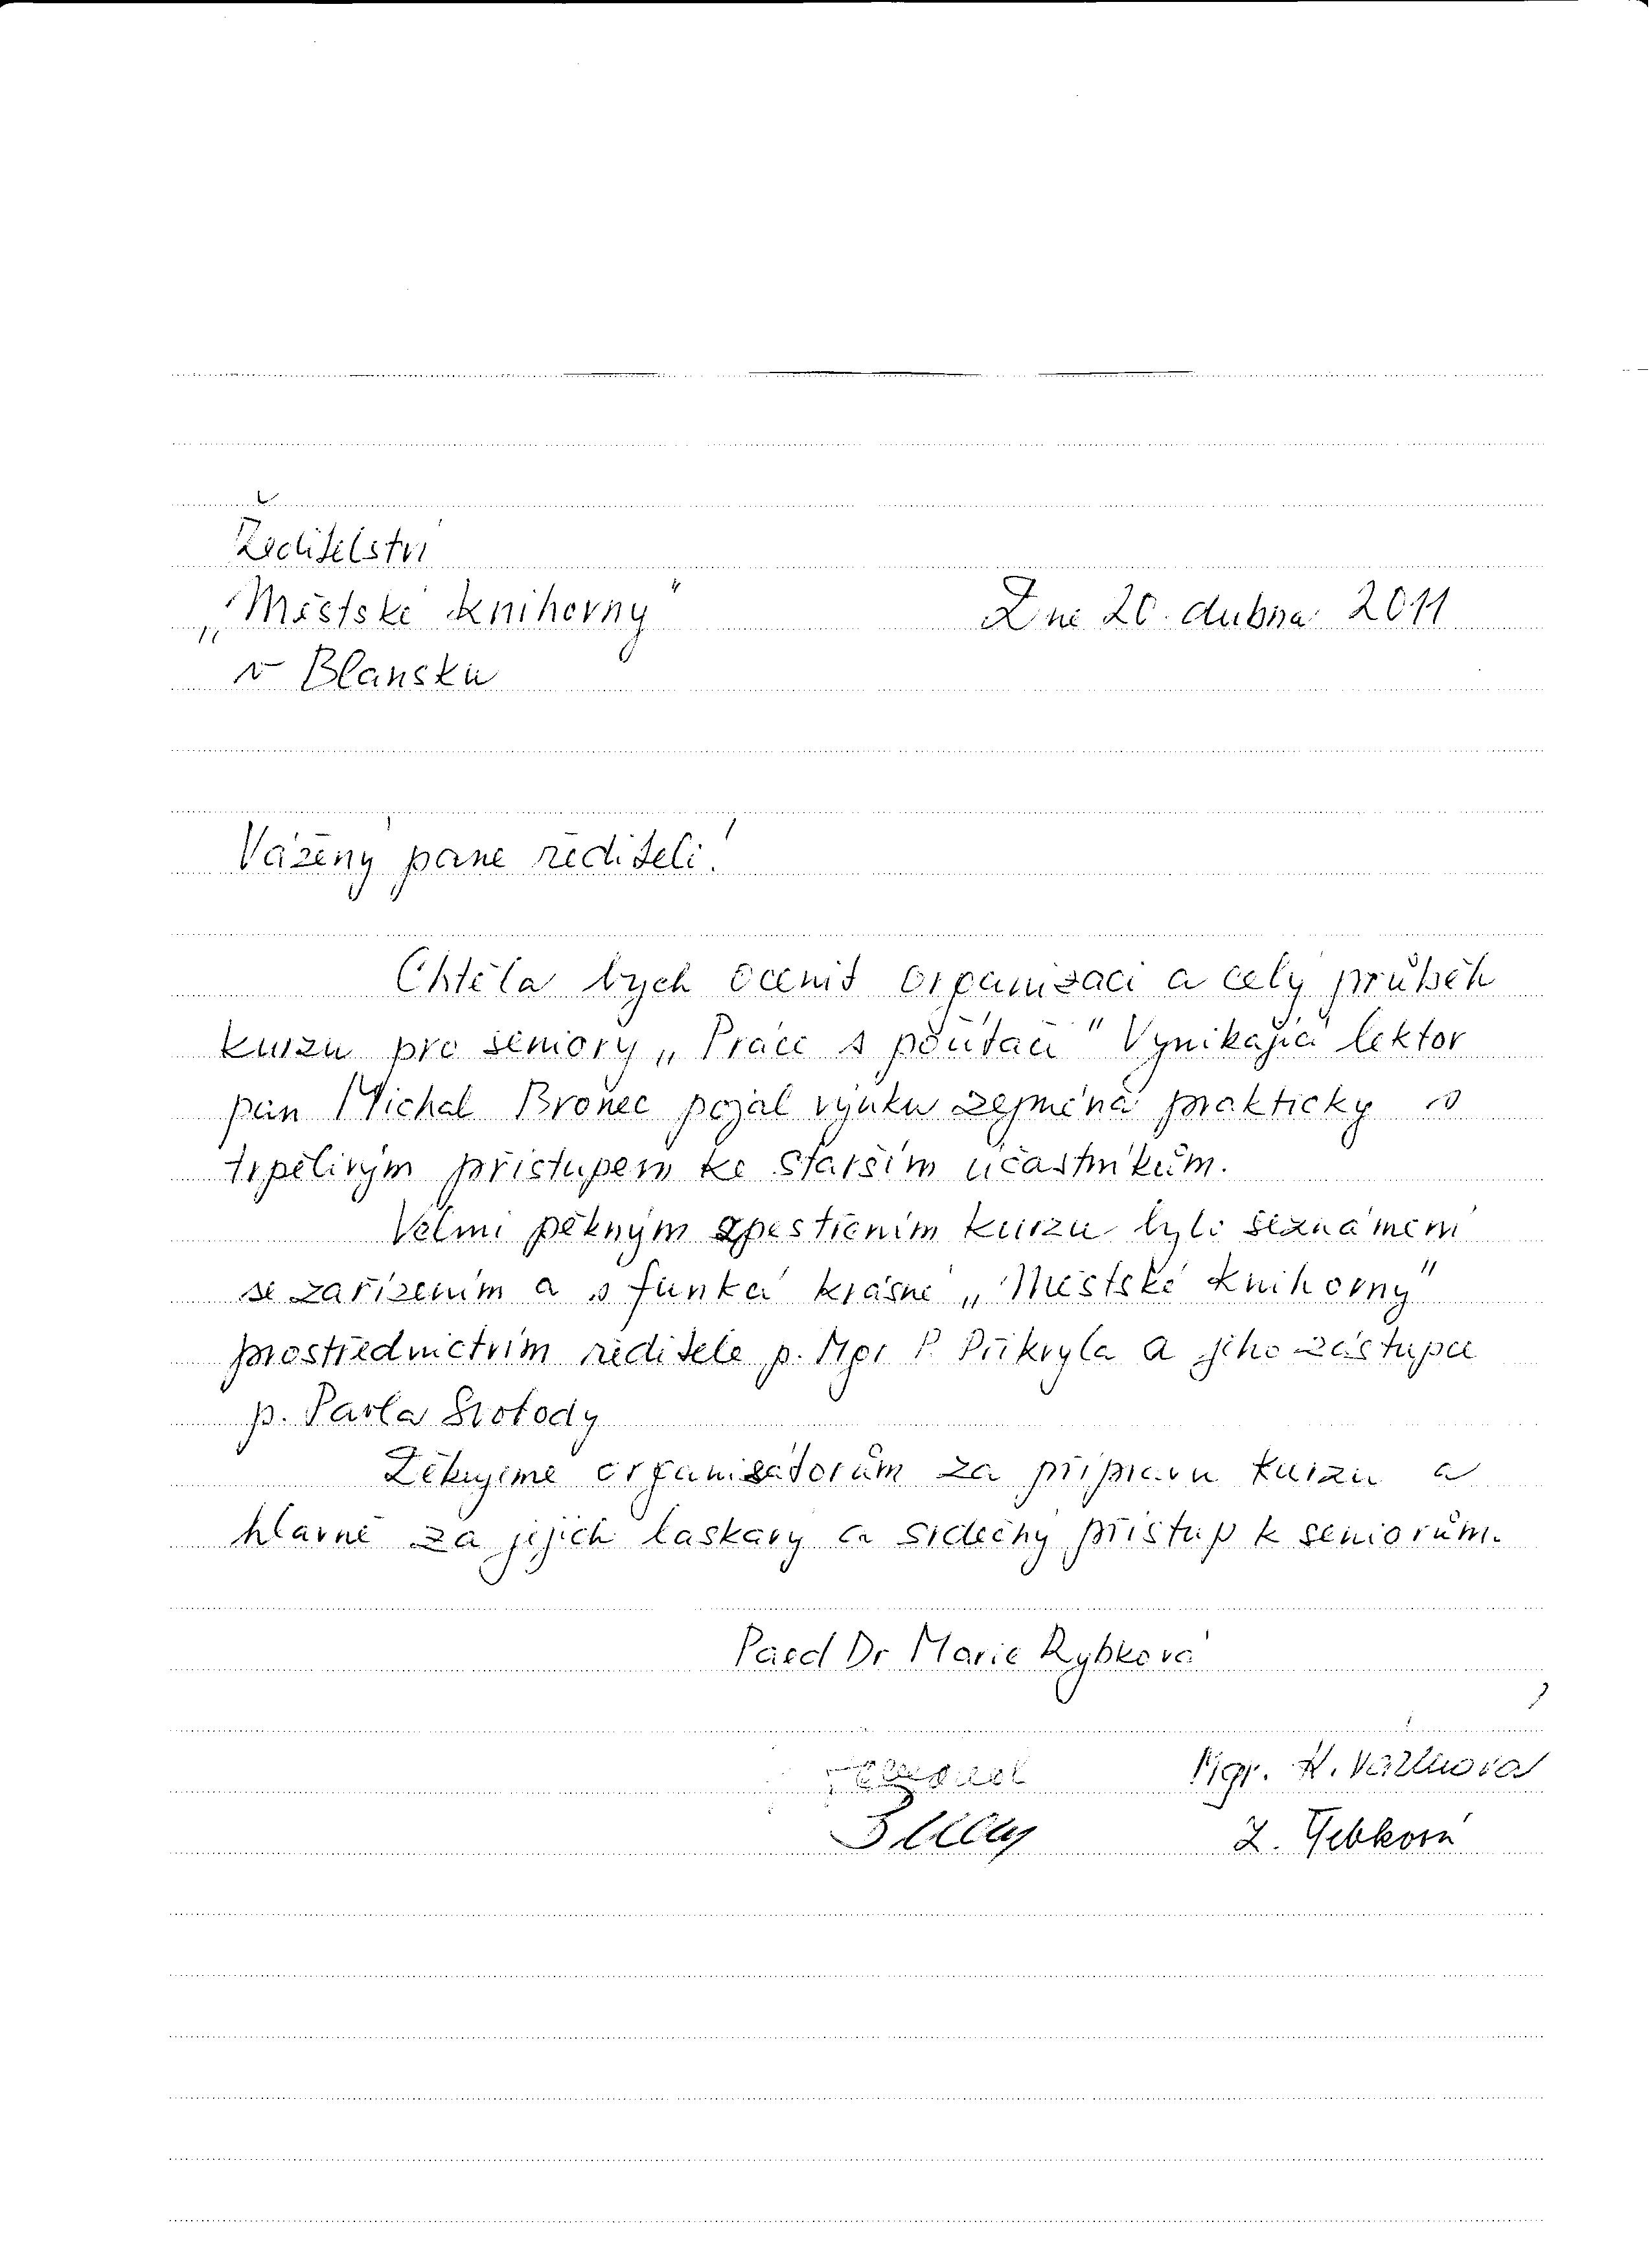 Ředitelství
„Městské knihovny"
v Blansku
Dne 20. dubna 2011
Vážený pane řediteli!
Chtěla bych ocenit organizaci a celý průběh
kurzu pro seniory „Práce s počítači" Vynikající lektor
pan Michal Bronec pojal výuku zejména prakticky s
trpělivým přístupem ke starším účastníkům.
Velmi pěkným zpestřením kurzu bylo seznámení
se zařízením a s funkcí krásné „Městské knihovny"
prostřednictvím ředitele p. Mgr P. Přikryla a jeho zástupce
p. Pavla Svobody
Děkujeme organisátorům za přípravu kurzu a
hlavně za jejich laskavý a srdečný přístup k seniorům.
PaedDr Marie Rybková
Mgr.